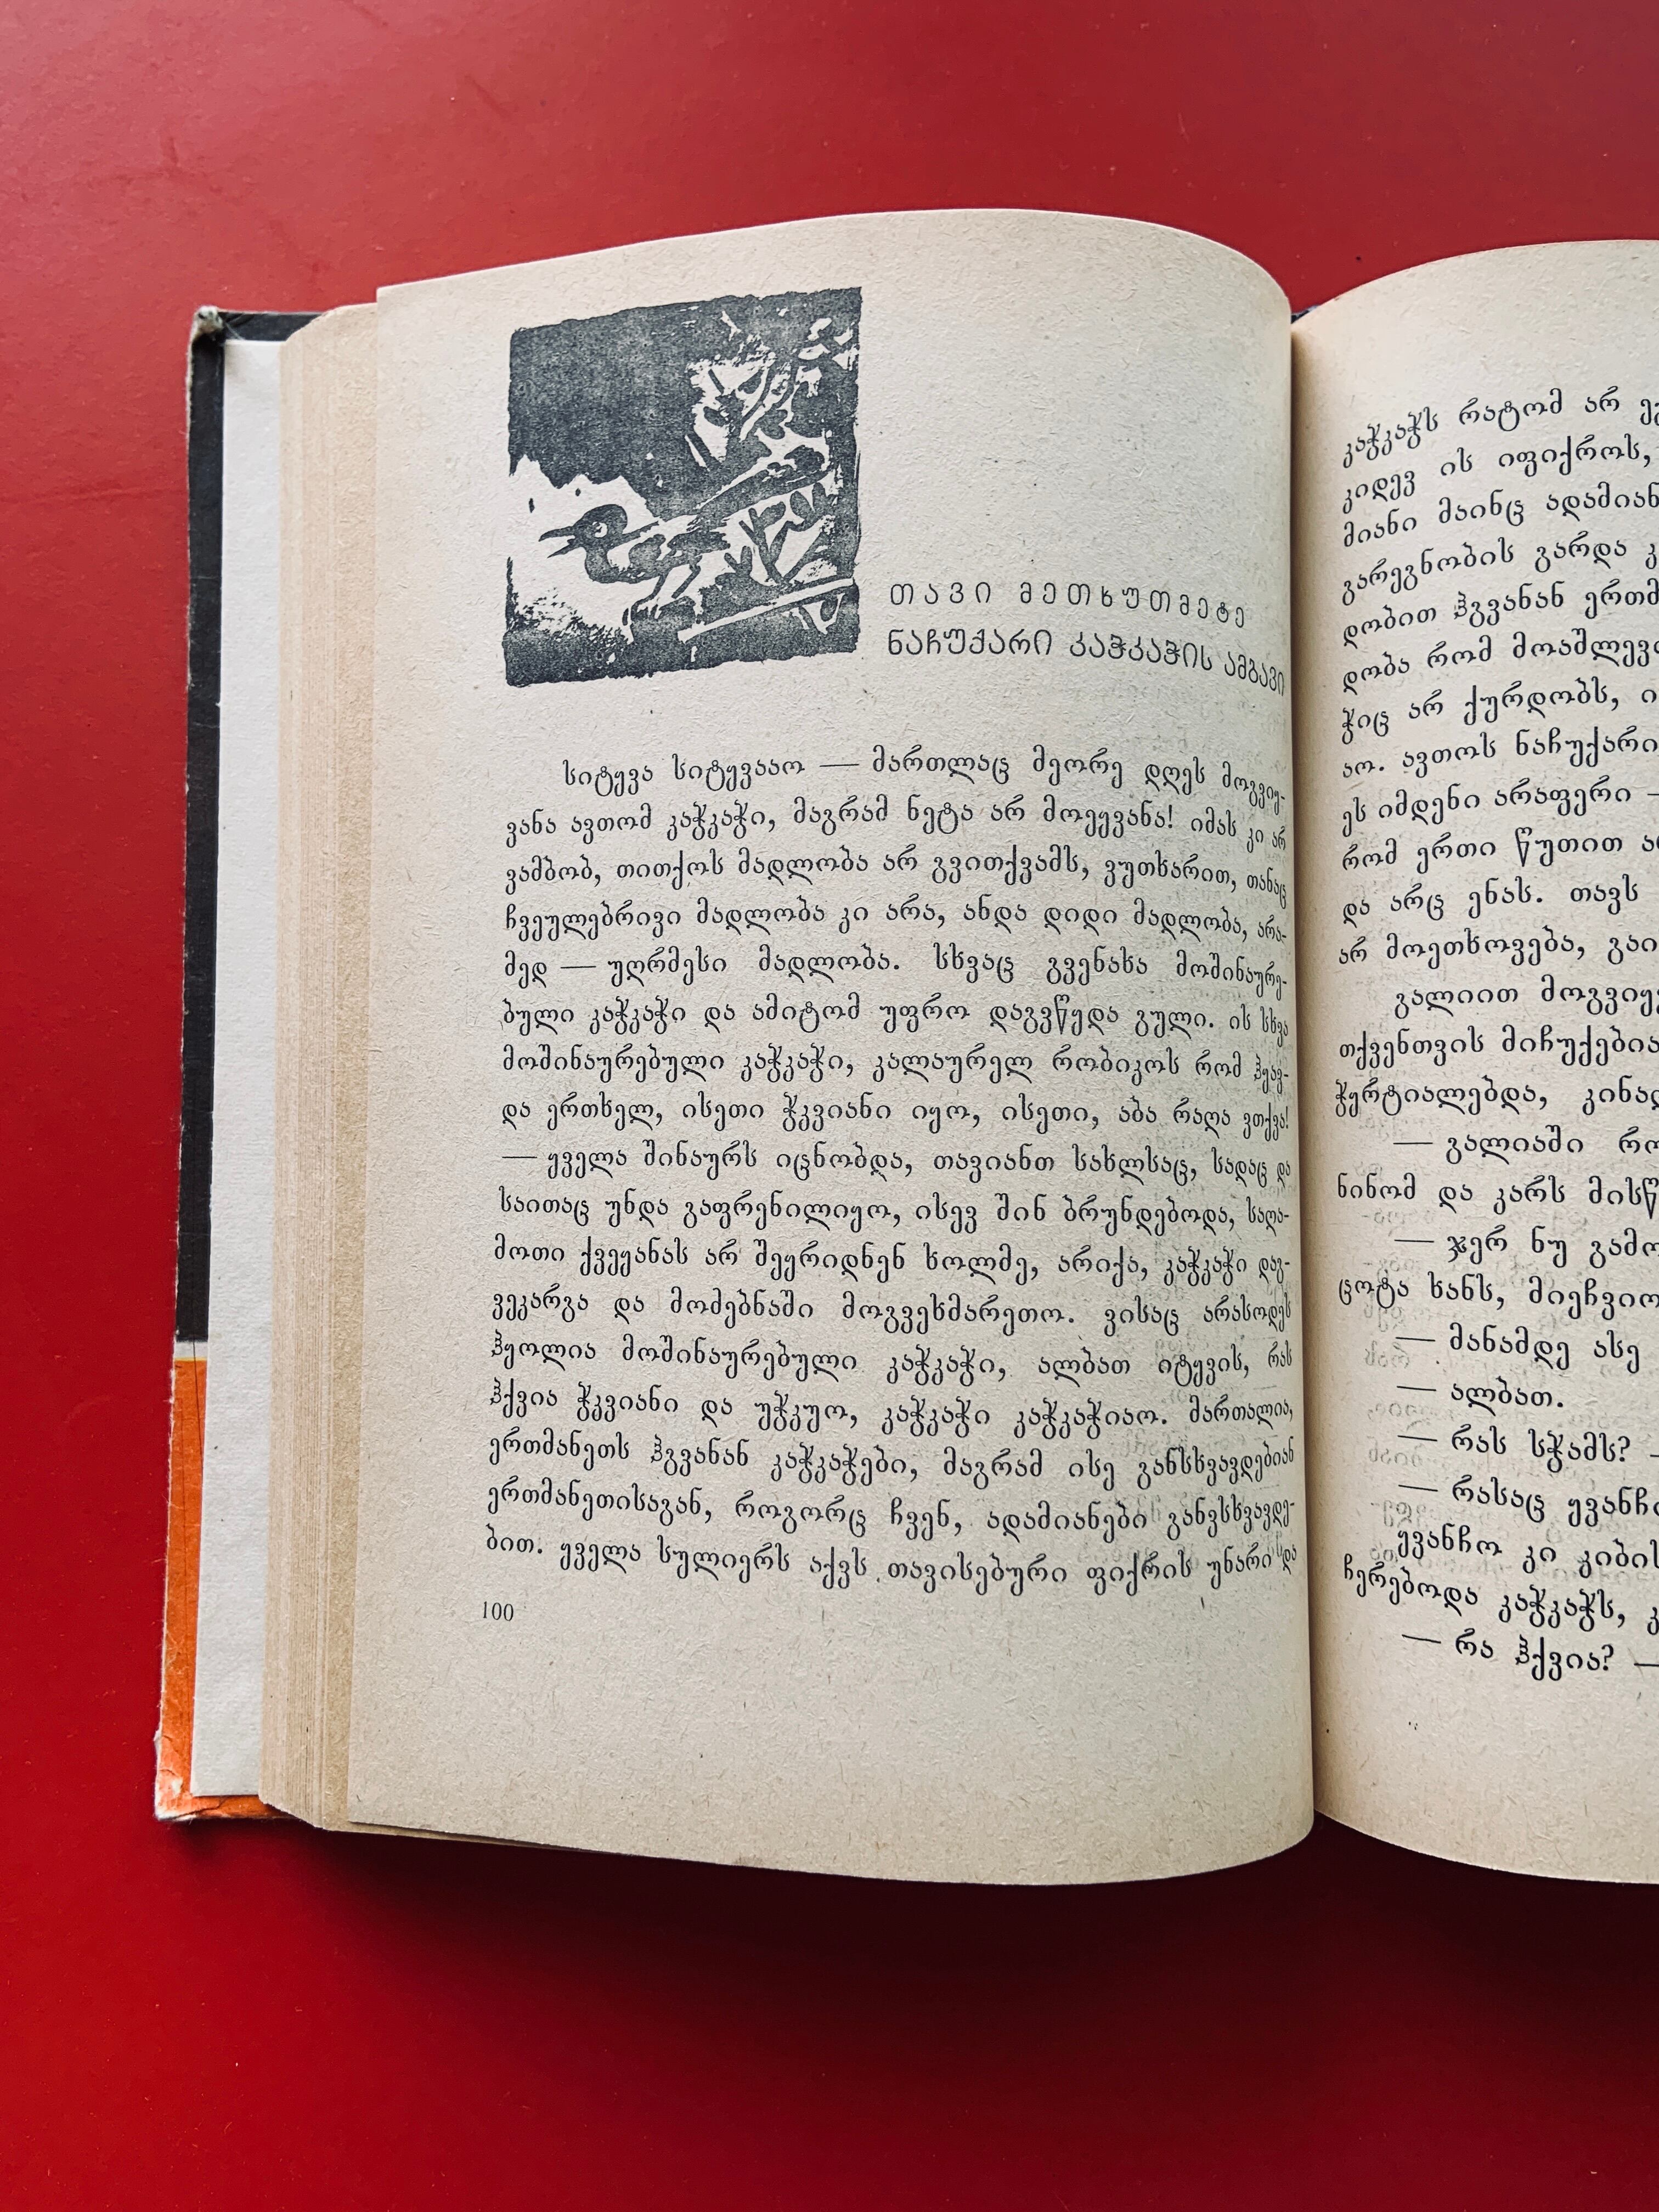 თავი მეთხუთმეტე
ნაჩუქარი კაჭკაჭის ამბავი
სიტყვა სიტყვააო — მართლაც მეორე დღეს მოგვიყ-
ვანა ავთომ კაჭკაჭი, მაგრამ ნეტა არ მოეყვანა! იმას კი არ
ვამბობ, თითქოს მადლობა არ გვითქვამს, ვუთხარით, თანაც
ჩვეულებრივი მადლობა კი არა, ანდა დიდი მადლობა, არა-
მედ — უღრმესი მადლობა. სხვაც გვენახა მოშინაურე-
ბული კაჭკაჭი და ამიტომ უფრო დაგვწყდა გული. ის სხვა
მოშინაურებული კაჭკაჭი, კალაურელ რობიკოს რომ ჰყავ-
და ერთხელ, ისეთი ჭკვიანი იყო, ისეთი, აბა რაღა ვთქვა!
— ყველა შინაურს იცნობდა, თავიანთ სახლსაც, სადაც და
საითაც უნდა გაფრენილიყო, ისევ შინ ბრუნდებოდა, საღა-
მოთი ქვეყანას არ შეყრიდნენ ხოლმე, არიქა, კაჭკაჭი დაგ-
ვეკარგა და მომებნაში მოგვეხმარეთო. ვისაც არასოდეს
ჰყოლია მოშინაურებული კაჭკაჭი, ალბათ იტყვის, რას
ჰქვია ჭკვიანი და უჭკუო, კაჭკაჭი კაჭკაჭიაო. მართალია,
ერთმანეთს ჰგვანან კაჭკაჭები, მაგრამ ისე განსხვავდებიან
ერთმანეთისაგან, როგორც ჩვენ, ადამიანები განვსხვავდე-
ბით. ყველა სულიერს აქვს თავისებური ფიქრის უნარი და
100
კაჭკაჭს რატომ არ
კიდევ ის იფიქროს,
მიანი მაინც ადამიან
გარეგნობის გარდა
დობით ჰგვანან ერთმ
დობა რომ მოაშლევ
ჭიც არ ქურდობს, ი
აო. ავთოს ნაჩუქარი
ეს იმდენი არაფერი —
რომ ერთი წუთით
და არც ენას. თავს
არ მოეთხოვება, გაი
გალიით მოგვიყ
თქვენთვის მიჩუქებია
ჭყრტიალებდა, კინაღ
— გალიაში რო
ნინომ და კარს მისწ
— ჯერ ნუ გამო
ცოტა ხანს, მიეჩვიო
— მანამდე ასე
— ალბათ.
— რას სჭამს? —
— რასაც ყვანჩ
ყვანჩო კი კიბის
ჩერებოდა კაჭკაჭს,
— რა ჰქვია? —